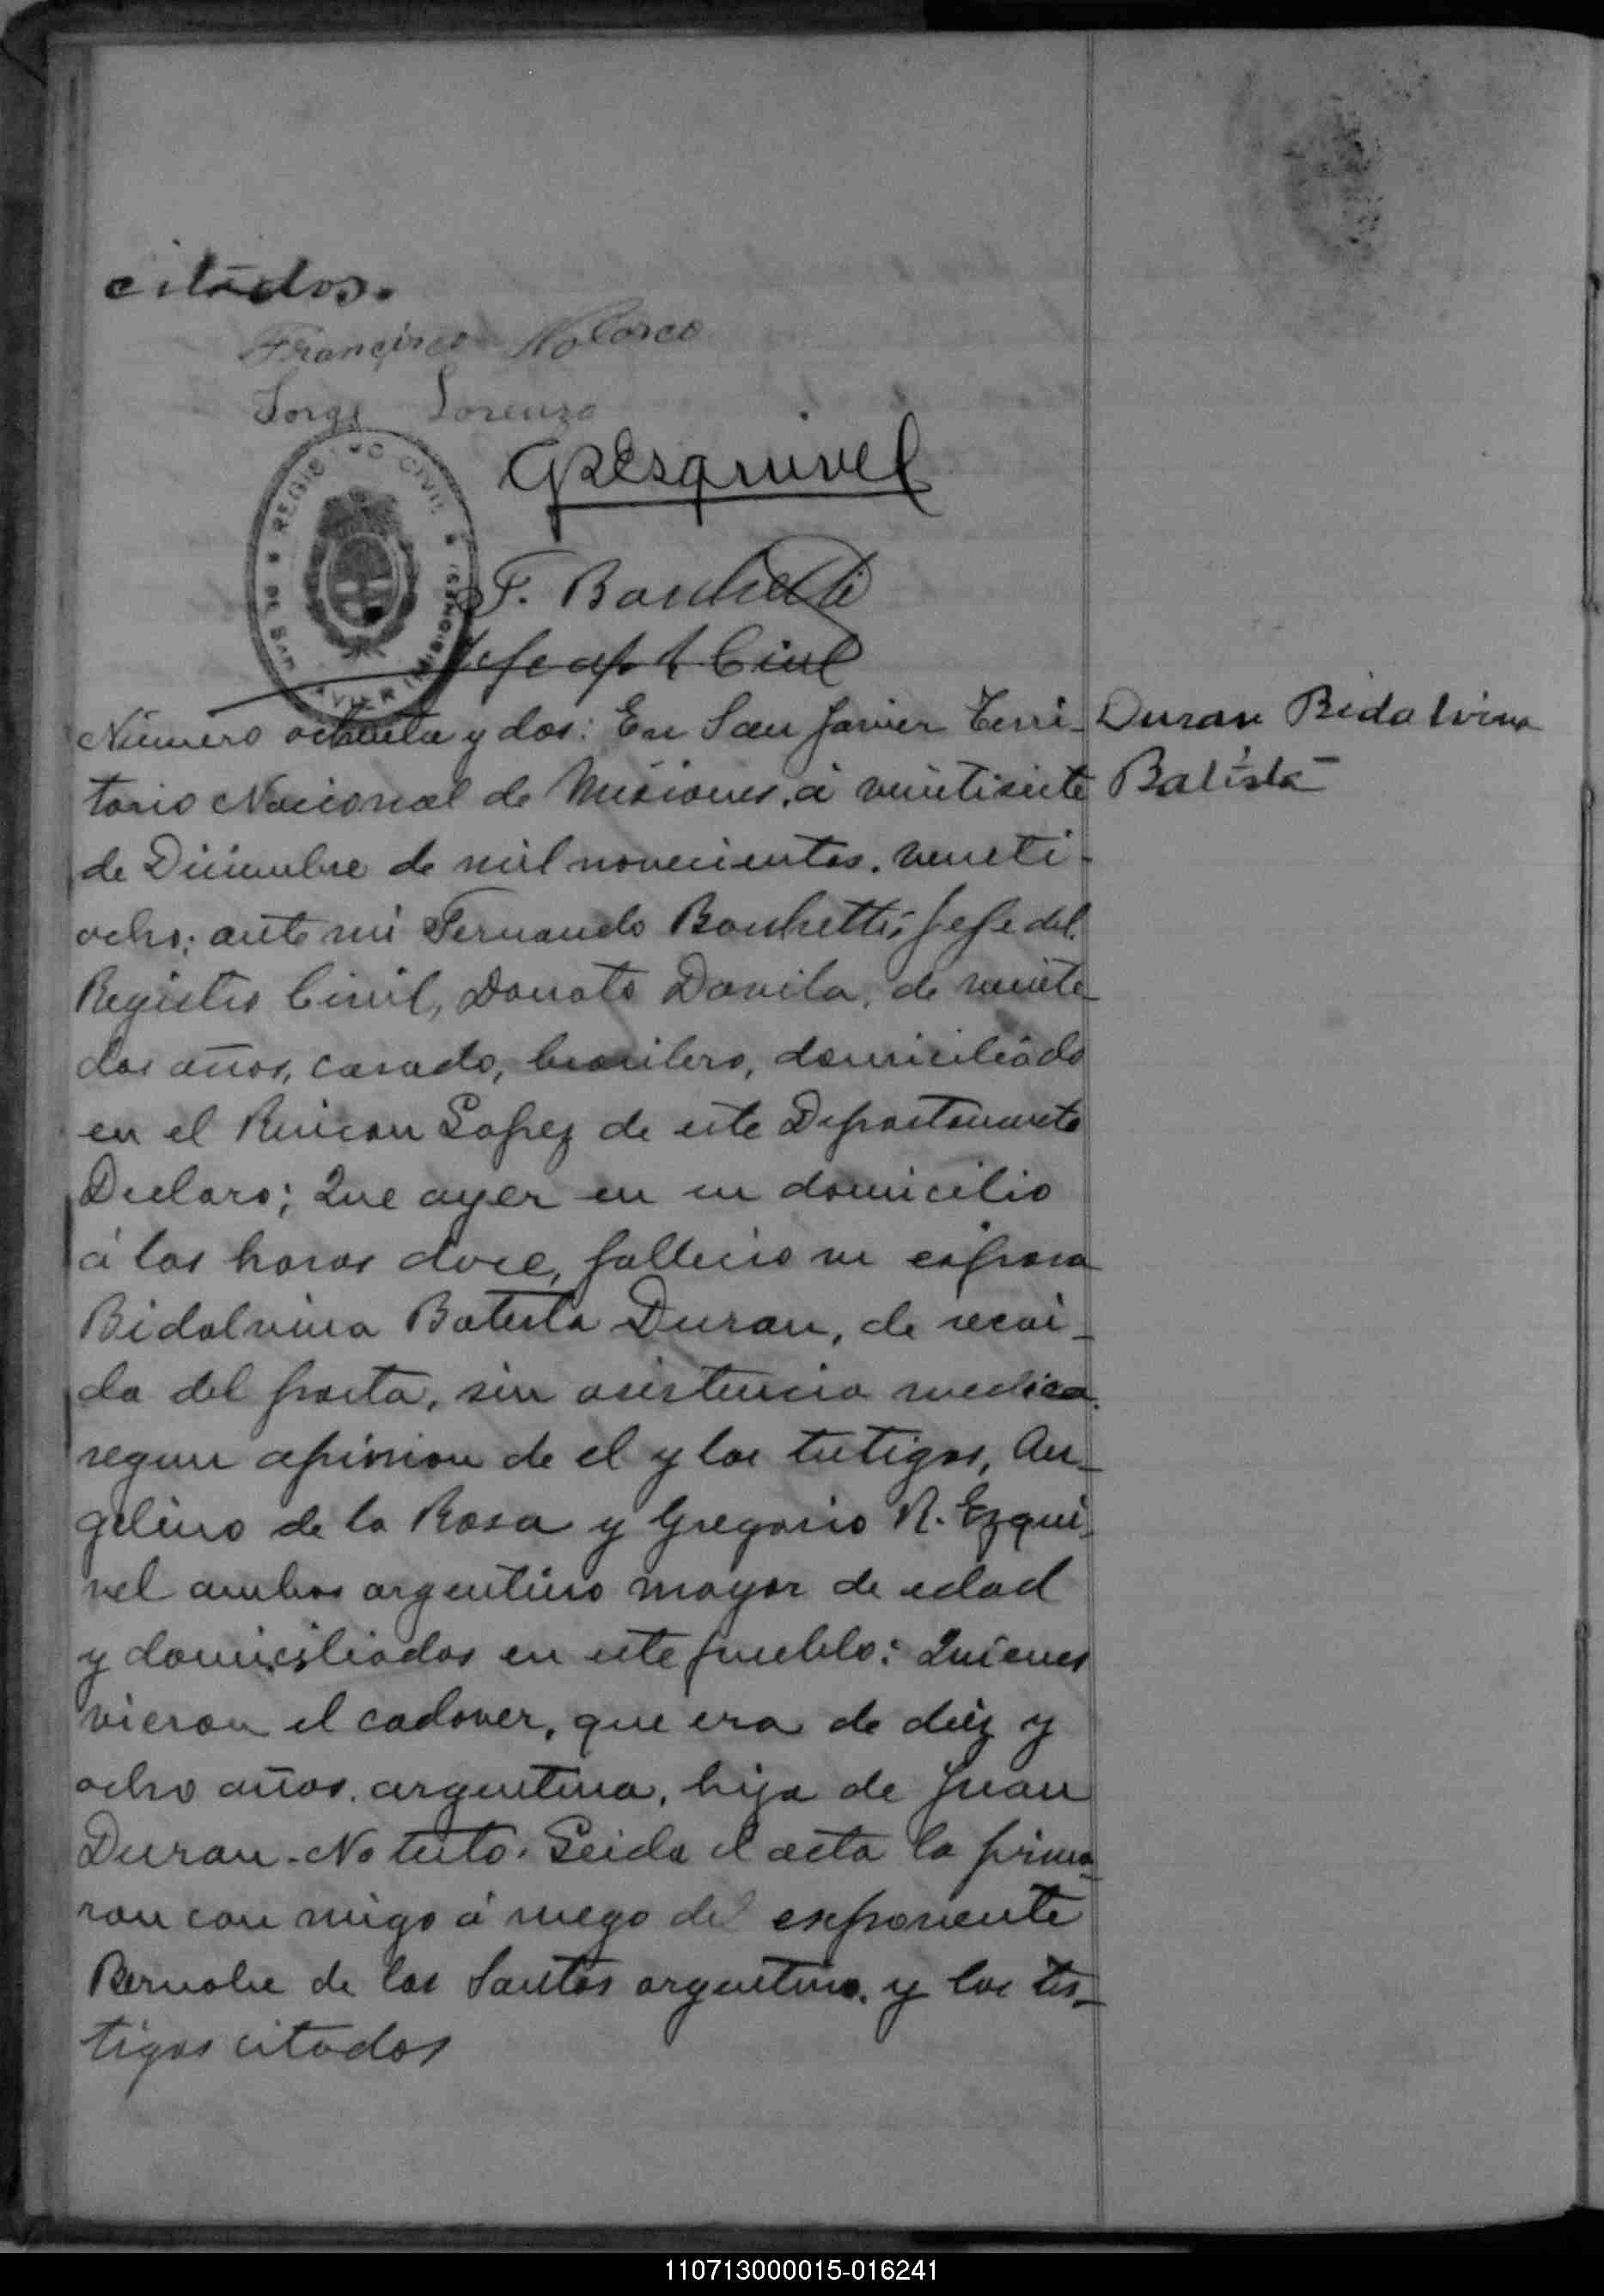 citados.
Francisco Nolasco
Jorge Lorenzo
GREsquivel
F. Bonchetti
Jefe del R. Civil
REGISTRO CIVIL
DE SAN JAVIER (MISIONES)
Número ochenta y dos: En San Javier Terri-
torio Nacional de Misiones, á veintisiete
de Diciembre de mil novecientos, veinti-
ocho; ante mi Fernando Bonchetti, Jefe del
Registro Civil, Donato Davila, de veinte
dos años, casado, brasilero, domiciliado
en el Rincon Lopez de este Departamento
Declaro; Que ayer en su domicilio
á las horas doce, fallecio su esposa
Bidalvina Batista Duran, de recai-
da del parto, sin asistencia medica
segun opinion de el y los testigos, An-
gelino de la Rosa y Gregorio R. Ezqui-
vel ambos argentino mayor de edad
y domiciliados en este pueblo: Quienes
vieron el cadaver, que era de diez y
ocho años, argentina, hija de Juan
Duran. No testo. Leida el acta la firma-
ron con migo á ruego del exponente
Bernabe de los Santos argentino, y los tes-
tigos citados
Duran Bidalvina
Batista
110713000015-016241